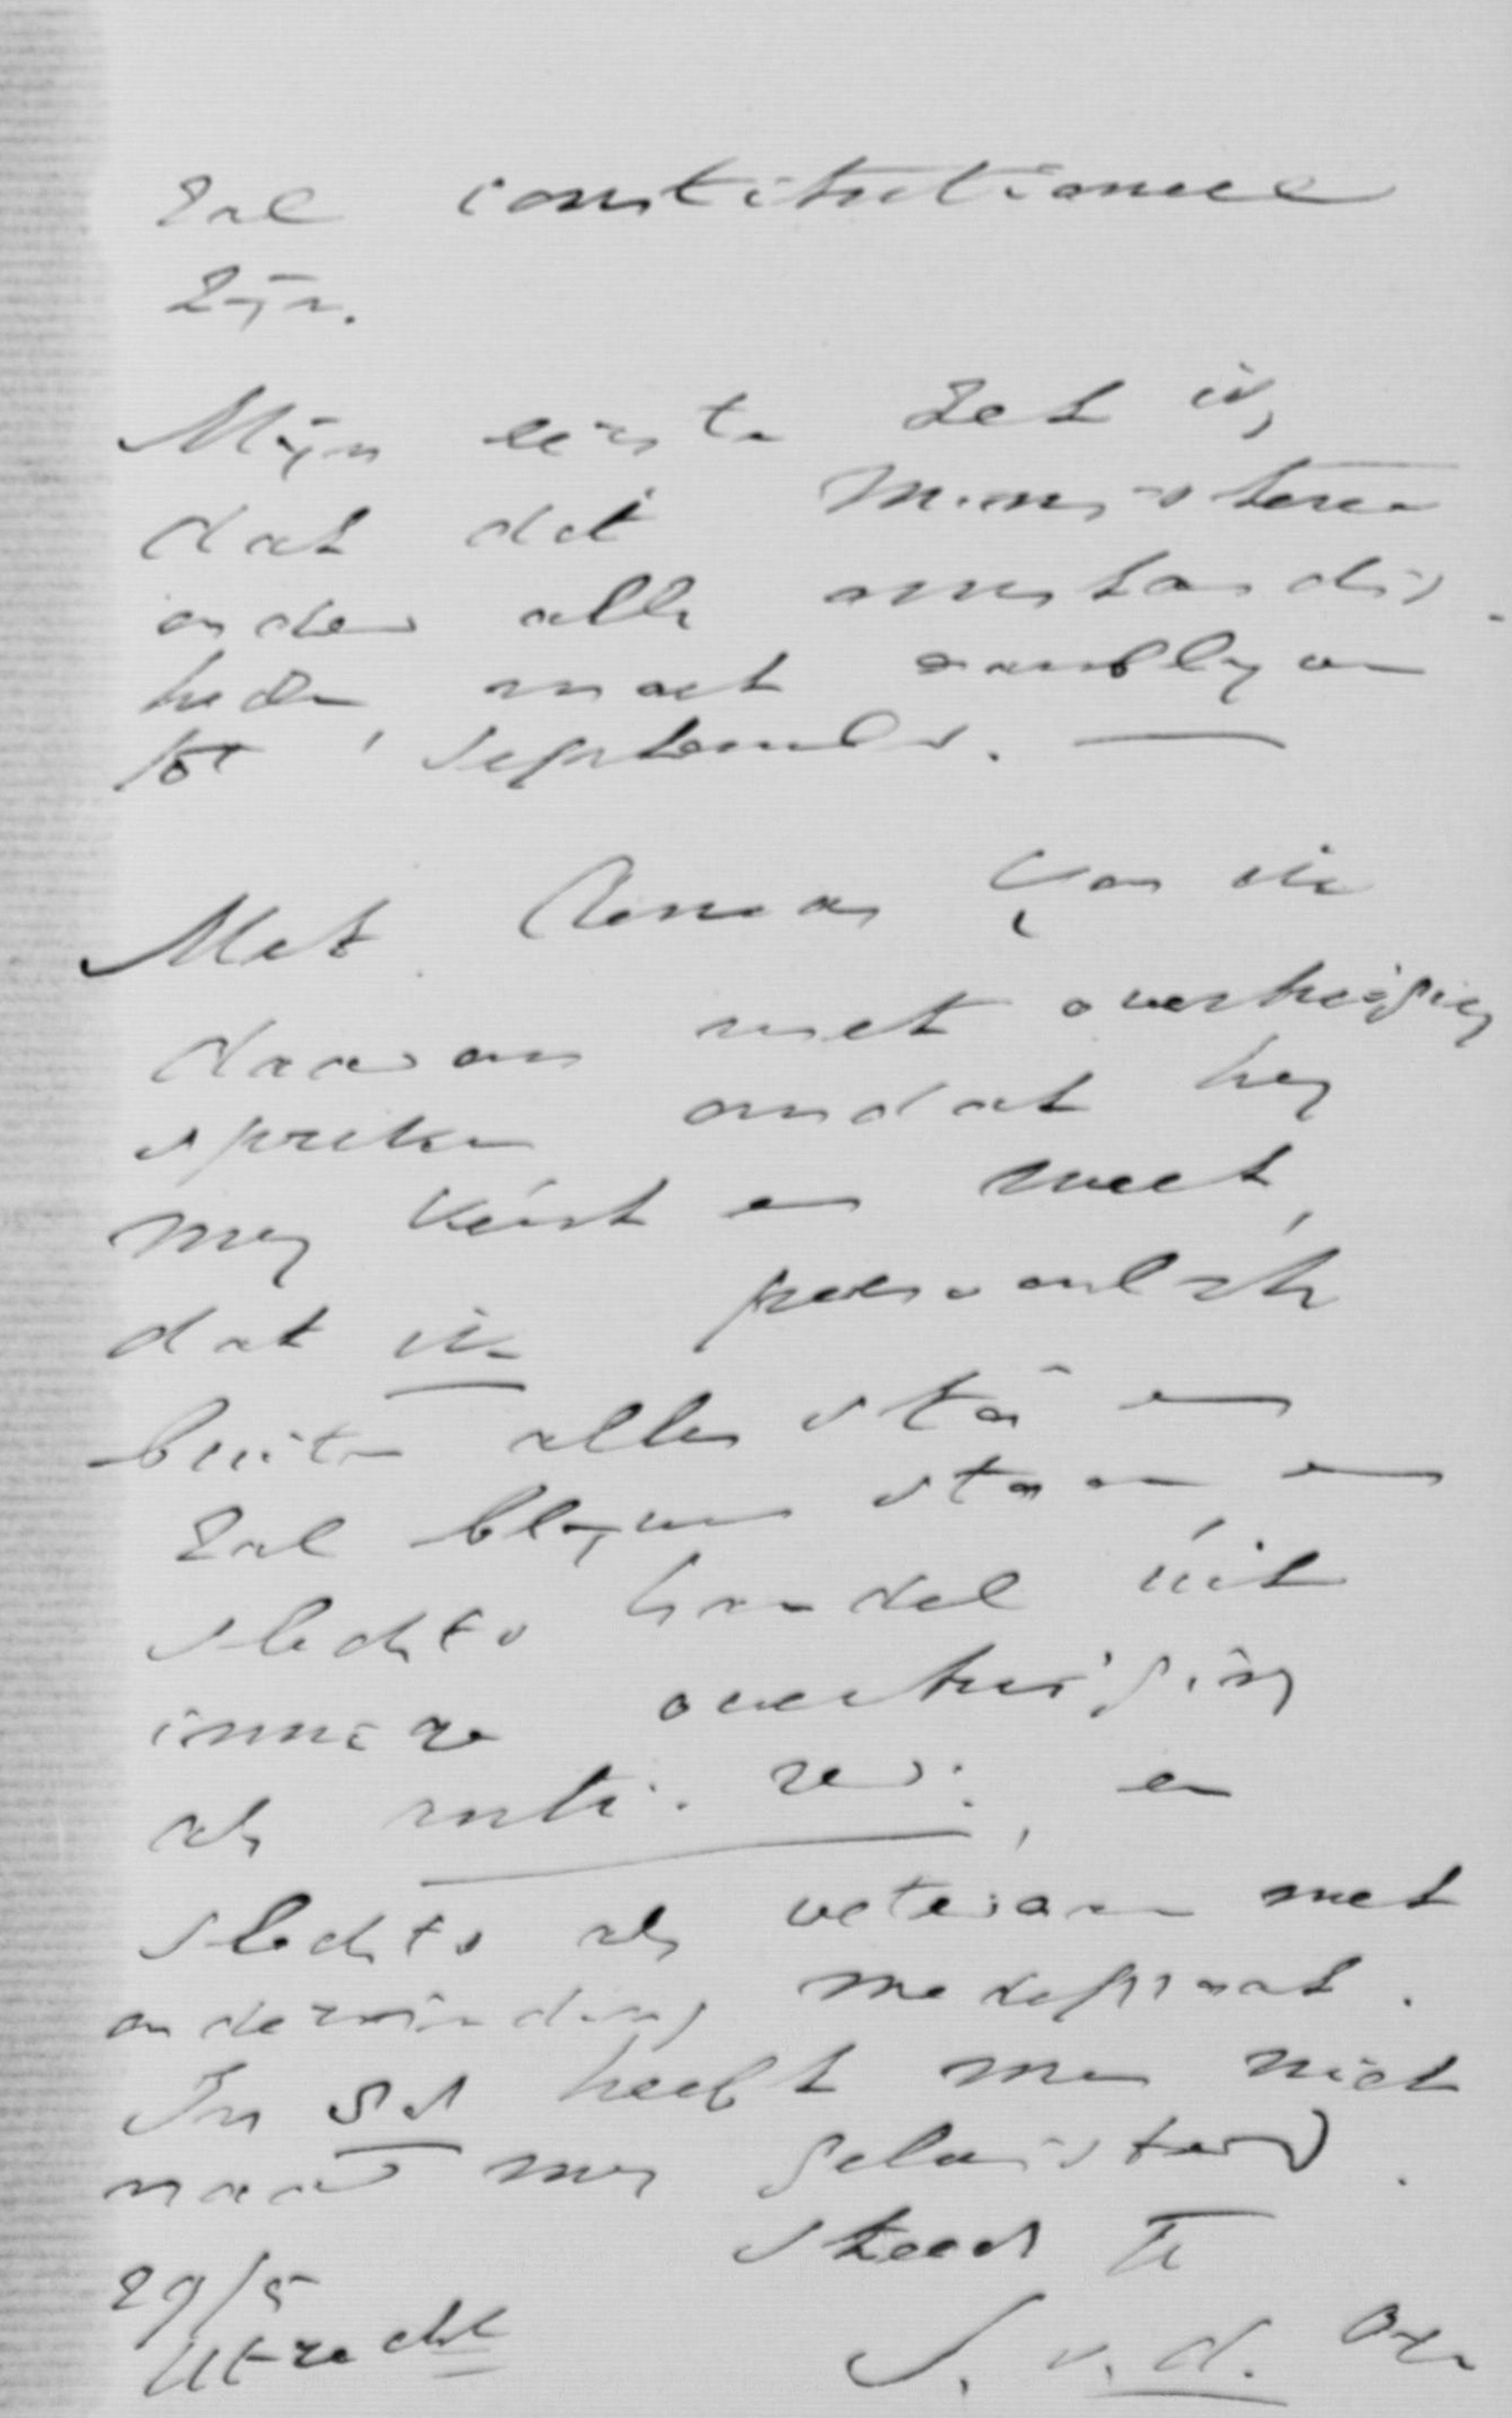 zal constitutioneel
zijn.
Mijn eerste zet is,
dat dit Ministerie
onder alle omstandig-
heden, moet aanblyven
tot 1 September. —
Met kan ik
daarom met overtuiging
spreken omdat hy
my kent en weet,
dat ik persoonlijk
buiten alles sta en
zal blyven staan, en
slechts handel uit
innige overtuiging
als anti. rev:, en
slechts als veteraan met
ondervinding medepraat.
In 81 heeft men niet
naar my geluisterd.
Steeds Uw
29/5
Utrecht
J. v. d.